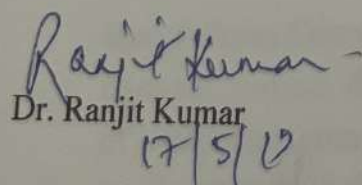 Ranjit Kumar
Dr. Ranjit Kumar
17/5/19